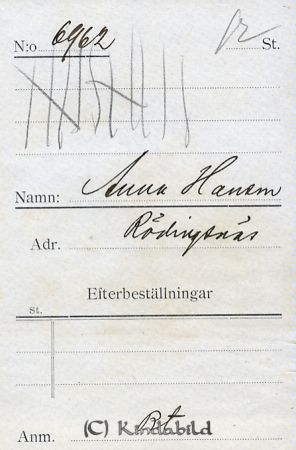 N:o 6962 1/2 St.
Namn: Anna Hansen
Adr. Rödingsnäs
Efterbeställningar
St.
Anm. Bet
(C) Kindabild